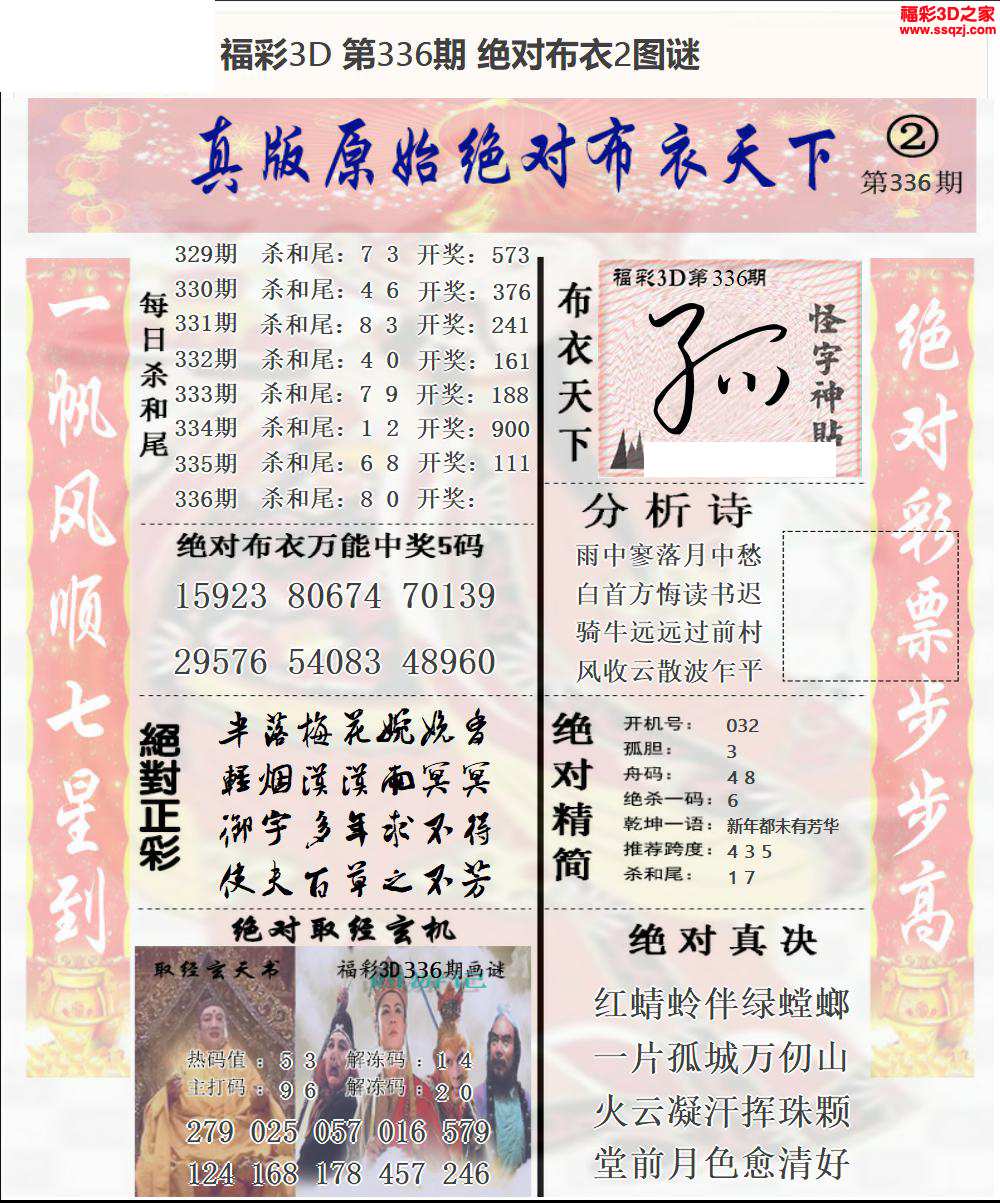 福彩3D之家
www.ssqzj.com
福彩3D 第336期 绝对布衣2图谜
真版原始绝对布衣天下
②
第336期
一帆风顺七星到
每日杀和尾
329期 杀和尾：7 3 开奖：573
330期 杀和尾：4 6 开奖：376
331期 杀和尾：8 3 开奖：241
332期 杀和尾：4 0 开奖：161
333期 杀和尾：7 9 开奖：188
334期 杀和尾：1 2 开奖：900
335期 杀和尾：6 8 开奖：111
336期 杀和尾：8 0 开奖：
绝对布衣万能中奖5码
15923 80674 70139
29576 54083 48960
絕對正彩
半落梅花婉娩香
轻烟漠漠雨冥冥
御宇多年求不得
使夫百草之不芳
绝对取经玄机
取经玄天书
福彩3D336期画谜
热码值：5 3 解冻码：1 4
主打码：9 6 解冻码：2 0
279 025 057 016 579
124 168 178 457 246
布衣天下
福彩3D第336期
怪字神貼
分析诗
雨中寥落月中愁
白首方悔读书迟
骑牛远远过前村
风收云散波乍平
绝对精简
开机号：032
孤胆：3
舟码：4 8
绝杀一码：6
乾坤一语：新年都未有芳华
推荐跨度：4 3 5
杀和尾：1 7
绝对真决
红蜻蛉伴绿螳螂
一片孤城万仞山
火云凝汗挥珠颗
堂前月色愈清好
绝对彩票步步高